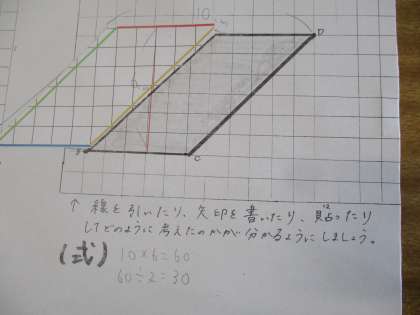 10
D
B
C
↑ 線を引いたり、矢印を書いたり、貼ったり
してどのように考えたのかが分かるようにしましょう。
(式) 10×6=60
60÷2=30